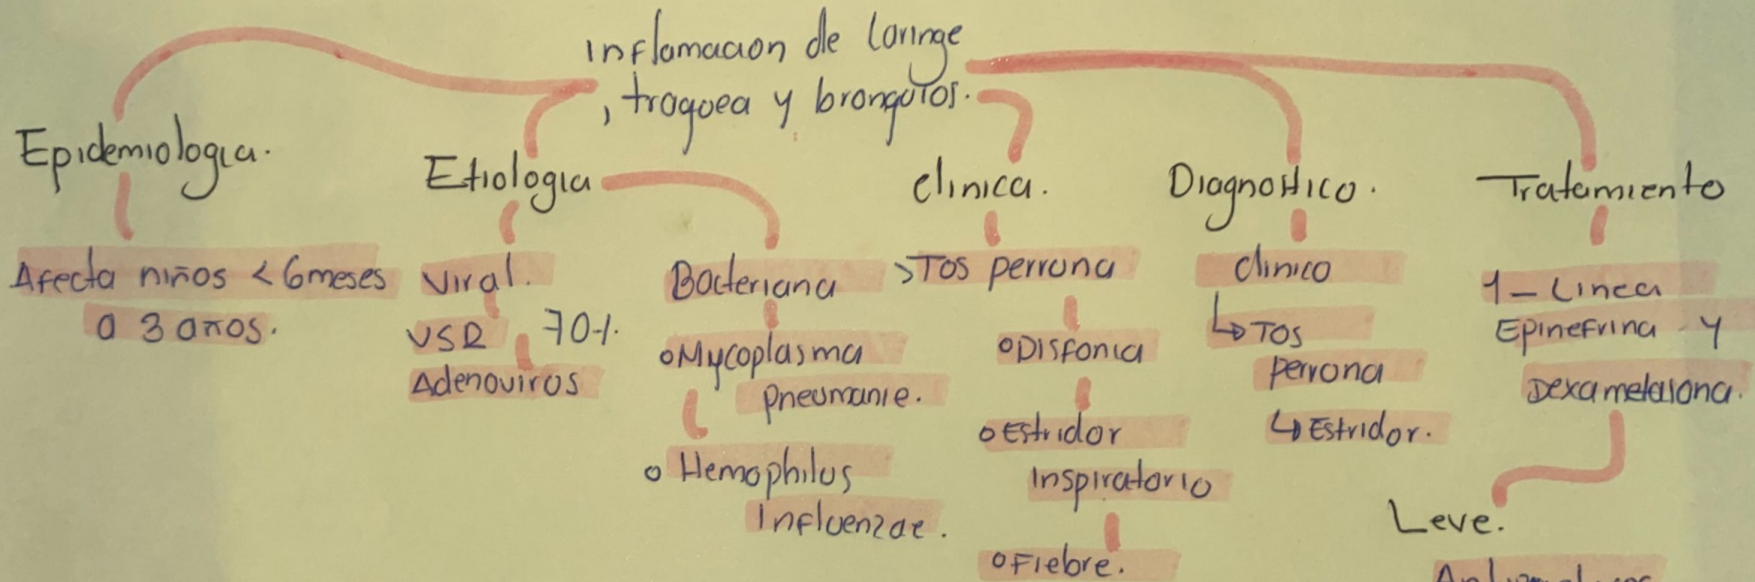 Inflamacion de laringe
, traquea y bronquios.
Epidemiologia.
Afecta niños < 6meses
a 3 años.
Etiologia
Viral.
VSR 70%.
Adenovirus
Bacteriana
o Mycoplasma
pneumanie.
o Hemophilus
Influenzae.
clinica.
>Tos perruna
o Disfonia
o Estridor
Inspiratorio
o Fiebre.
Diagnostico.
clinico
↳ Tos
perruna
↳ Estridor.
Tratamiento
1- Linea
Epinefrina y
Dexametasona.
Leve.